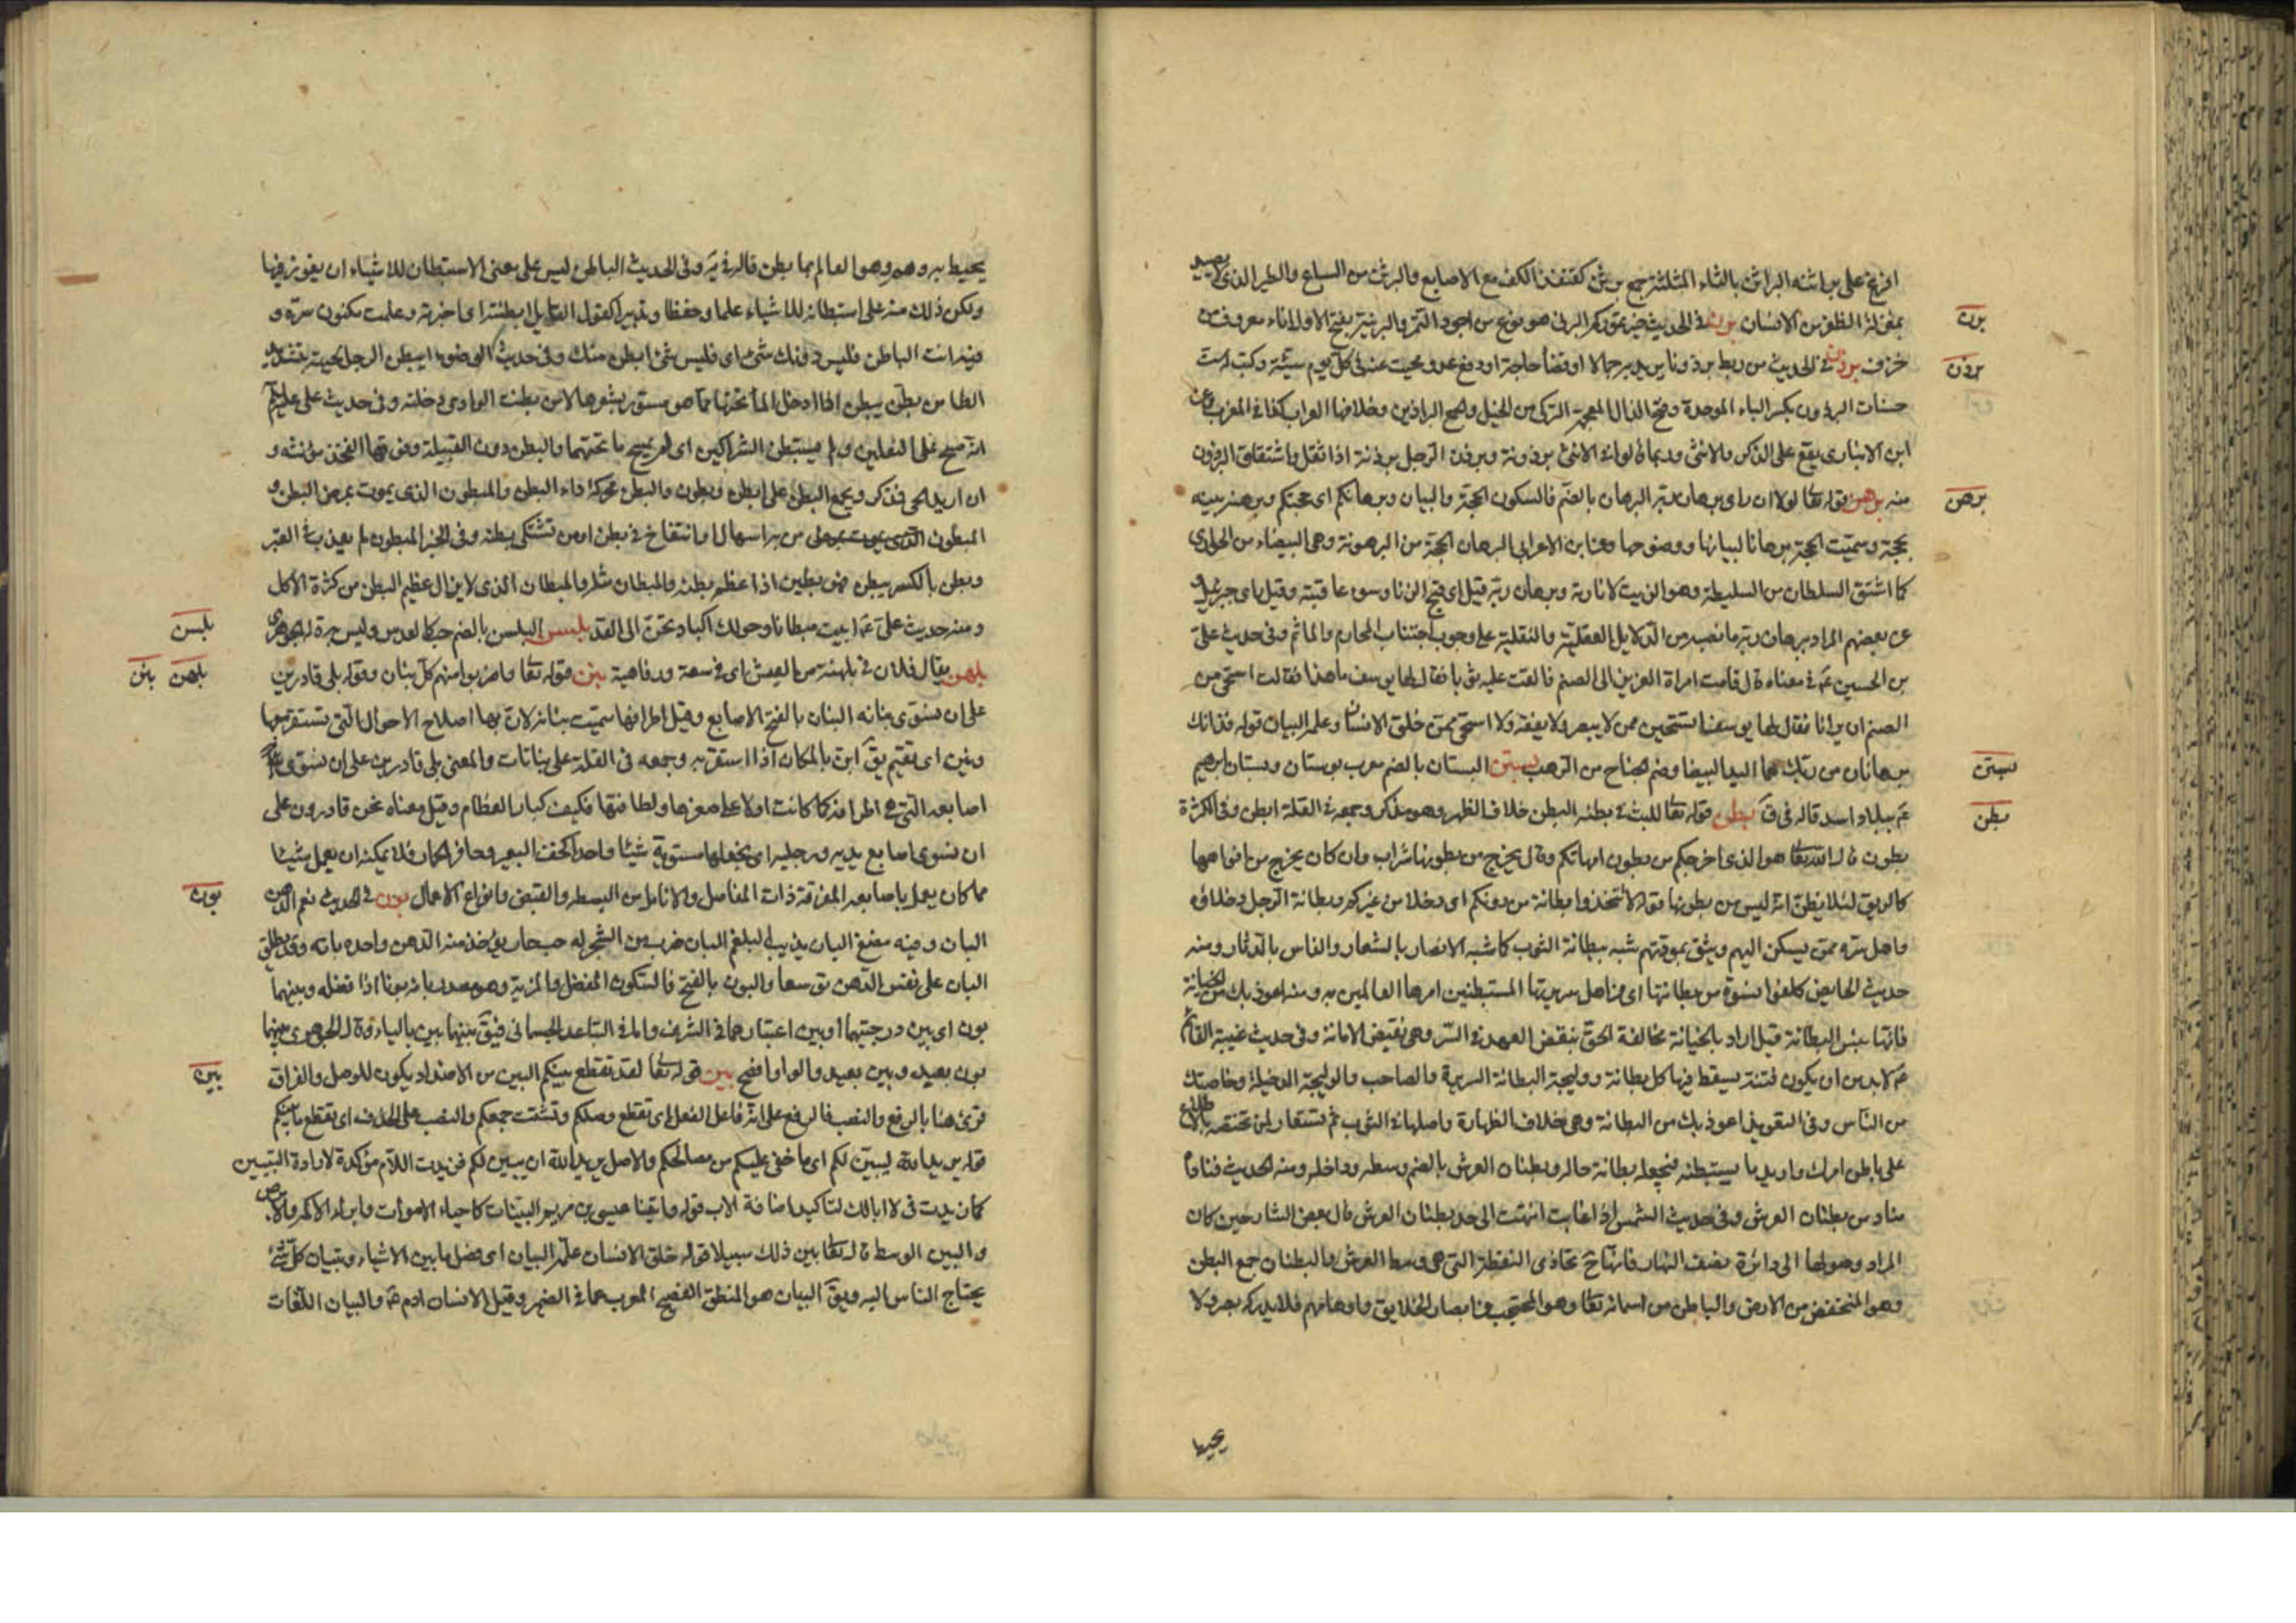 افرغ على براثنه البراثن بالثاء المثلثة جمع برثن كقنفذ الكف مع الاصابع والبرثن من السباع والطير الذى لا يصيد
بمنزلة الظفر من الانسان برن فى الحديث خير تموركم البرنى هو نوع من اجود التمر والبرنية بفتح الاول اناء معروف من
برن
خزف برذن فى الحديث من ربط برذونا يريد به جمالا او قضا حاجة او دفع عدو محيت عنه فى كل يوم سيئة وكتب له ست
برذن
حسنات البرذون بكسر الباء الموحدة وفتح الذال المعجمة التركى من الخيل والجمع البراذين وخلافها العراب كذا فى المغرب وعن
ابن الانبارى يقع على الذكر والانثى وربما قالوا فى الانثى برذونة وبرذن الرجل برذنة اذا ثقل واشتقاق البرذون
منه برهن قوله تعا لولا ان راى برهان ربه البرهان بالضم فالسكون الحجة والبيان وبرهانكم اى حجتكم وبرهنه بينه
برهن
بحجة وسميت الحجة برهانا لبيانها ووضوحها وعن ابن الاعرابى البرهان الحجة من البرهونة وهى البيضاء من الجوارى
كما اشتق السلطان من السليط وهو الزيت لانارته وبرهان ربه قيل اى قبح الزنا وسوء عاقبته وقيل راى جبرئيل و
عن بعضهم المراد ببرهان ربه ما نصبه من الدلايل العقلية والنقلية على وجوب اجتناب المحارم والماثم وفى حديث على
بن الحسين ع فى معناه قال قامت امراة العزيز الى الصنم فالقت عليه ثوبا فقال لها يوسف ما هذا فقالت استحى من
الصنم ان يرانا فقال لها يوسف تستحين ممن لا يبصر ولا يفقه ولا استحى ممن خلق الانسان وعلمه البيان قوله فذانك
برهانان من ربك هما اليد البيضا وضم الجناح من الرهب بستن البستان بالضم معرب بوستان وبستان ابرهيم
بستن
ع ببلاد اسد قاله فى ق بطن قوله تعا للبث فى بطنه البطن خلاف الظهر وهو مذكر وجمعه فى القلة ابطن وفى الكثرة
بطن
بطون قال الله تعا هو الذى اخرجكم من بطون امهاتكم وقال يخرج من بطونها شراب وان كان يخرج من افواهها
كالريق لئلا يظن انه ليس من بطونها قوله لا تتخذوا بطانة من دونكم اى دخلا من غيركم وبطانة الرجل دخلاؤه
واهل سره ممن يسكن اليهم ويثق بمودتهم شبه ببطانة الثوب كما شبه الانصار بالشعار والناس بالدثار ومنه
حديث الحايض كلفوا نسوة من بطانتها اى من اهل سريرتها المستبطنين امرها العالمين به ومنه اعوذ بك من الخيانة
فانها بئس البطانة قيل اراد بالخيانة مخالفة الحق بنقض العهد فى السر وهى نقيض الامانة وفى حديث غيبة القائم
ع لابد من ان يكون فتنة يسقط فيها كل بطانة ووليجة البطانة السريرة والصاحب والوليجة الدخيلة وخاصتك
من الناس وفى التعويذ اعوذ بك من البطانة وهى خلاف الظهارة واصلها فى الثوب ثم تستعار لمن تختصه بالاطلاع
على باطن امرك واريد ما يستبطنه فيجعله بطانة حاله وبطنان العرش بالضم وسطه وداخله ومنه الحديث فنادا
مناد من بطنان العرش وفى حديث الشمس اذا غابت انتهت الى حد بطنان العرش قال بعض الشارحين كان
المراد وصولها الى دائرة نصف النهار فانها ح تحاذى النقطة التى هى وسط العرش والبطنان جمع البطن
وهو المنخفض من الارض والباطن من اسمائه تعا وهو المحتجب عن ابصار الخلايق واوهامهم فلا يدركه بصر ولا
يحيط
يحيط به وهم وهو العالم بما بطن قاله فى يه وفى الحديث الباطن ليس على معنى الاستبطان للاشياء ان يغور فيها
ولكن ذلك منه على استبطانه للاشياء علما وحفظا وتدبيرا كقول القايل ابطنته اى اخبرته وعلمت مكنون سره و
فيه انت الباطن فليس دونك شئ اى فليس شئ ابطن منك وفى حديث الوضوء ايبطن الرجل لحيته بتشديد
الطا من بطن يبطن اذا ادخل الماء تحتها مما هو مستور بشعرها لا من بطنت الوادى دخلته وفى حديث على عليلم
انه مسح على النعلين ولم يستبطن الشراكين اى لم يمسح ما تحتهما والبطن دون القبيلة وفوقها الفخذ مؤنثة و
ان اريد الحى فمذكر ويجمع البطن على ابطن وبطون والبطن محركة داء البطن والمبطون الذى يموت بمرض البطن و
المبطون الذى يموت بمرض من به اسهال او انتفاخ فى بطن او من تشتكى بطنه وفى الخبر المبطون لم يعذب فى القبر
وبطن بالكسر يبطن فهو بطين اذا عظم بطنه والمبطان مثله والمبطان الذى لا يزال عظيم البطن من كثرة الاكل
ومنه حديث على ع ا ابيت مبطانا وحولى اكباد تحن الى القد بلسن البلسن بالضم حب كالعدس وليس به قاله الجوهرى
بلسن
بلهن يقال فلان فى بلهنية من العيش اى فى سعة ورفاهية بنن قوله تعا واضربوا منهم كل بنان وقوله بلى قادرين
بلهن بنن
على ان نسوى بنانه البنان بالفتح الاصابع وقيل اطرافها سميت بنانا لان بها اصلاح الاحوال التى تستقر بها
وبنن اى تقيم يق ابن بالمكان اذا استقر به وجمعه فى القلة على بنانات والمعنى بلى قادرين على ان نسوى
اصابعه التى هى اطرافه كما كانت اولا على صغرها ولطافتها فكيف كبار العظام وقيل معناه نحن قادرون على
ان نسوى اصابع يديه ورجليه اى نجعلها مستوية شيئا واحدا كخف البعير وحافر الحمار فلا يمكنه ان يعمل شيئا
مما كان يعمل باصابعه المفرقة ذات المفاصل والانامل من البسط والقبض وانواع الاعمال بون فى الحديث نعم الدهن
بون
البان وفيه مضغ البان يذيب البلغم البان ضرب من الشجر له حب حار يؤخذ منه الدهن واحده بانه وقد يطلق
البان على نفس الدهن توسعا والبون بالفتح فالسكون الفضل والمزية وهو مصدر بانه بونا اذا فضله وبينهما
بون اى بين درجتيهما او بين اعتبارهما فى الشرف واما فى التباعد الجسمانى فيق بينهما بين بالياء وقال الجوهرى بينهما
بون بعيد وبين بعيد والواو افصح بين قوله تعا لقد تقطع بينكم البين من الاضداد يكون للوصل والفراق
بين
قرئ هنا بالرفع والنصب فالرفع على انه فاعل الفعل اى تقطع وصلكم وتشتت جمعكم والنصب على الحذف اى تقطع ما بينكم
قوله يريد الله ليبين لكم اى ما خفى عليكم من مصالحكم والاصل يريد الله ان يبين لكم فزيدت اللام مؤكدة لارادة التبيين
كما زيدت فى لا ابا لك لتاكيد اضافة الاب قوله واتينا عيسى بن مريم البينات كاحياء الاموات وابراء الاكمه والابرص
والبين الوسط قال تعا بين ذلك سبيلا قوله خلق الانسان علمه البيان اى فضل ما بين الاشياء وتبيان كل شئ
يحتاج الناس اليه ويق البيان هو المنطق الفصيح المعرب عما فى الضمير وقيل الانسان ادم ع والبيان اللغات